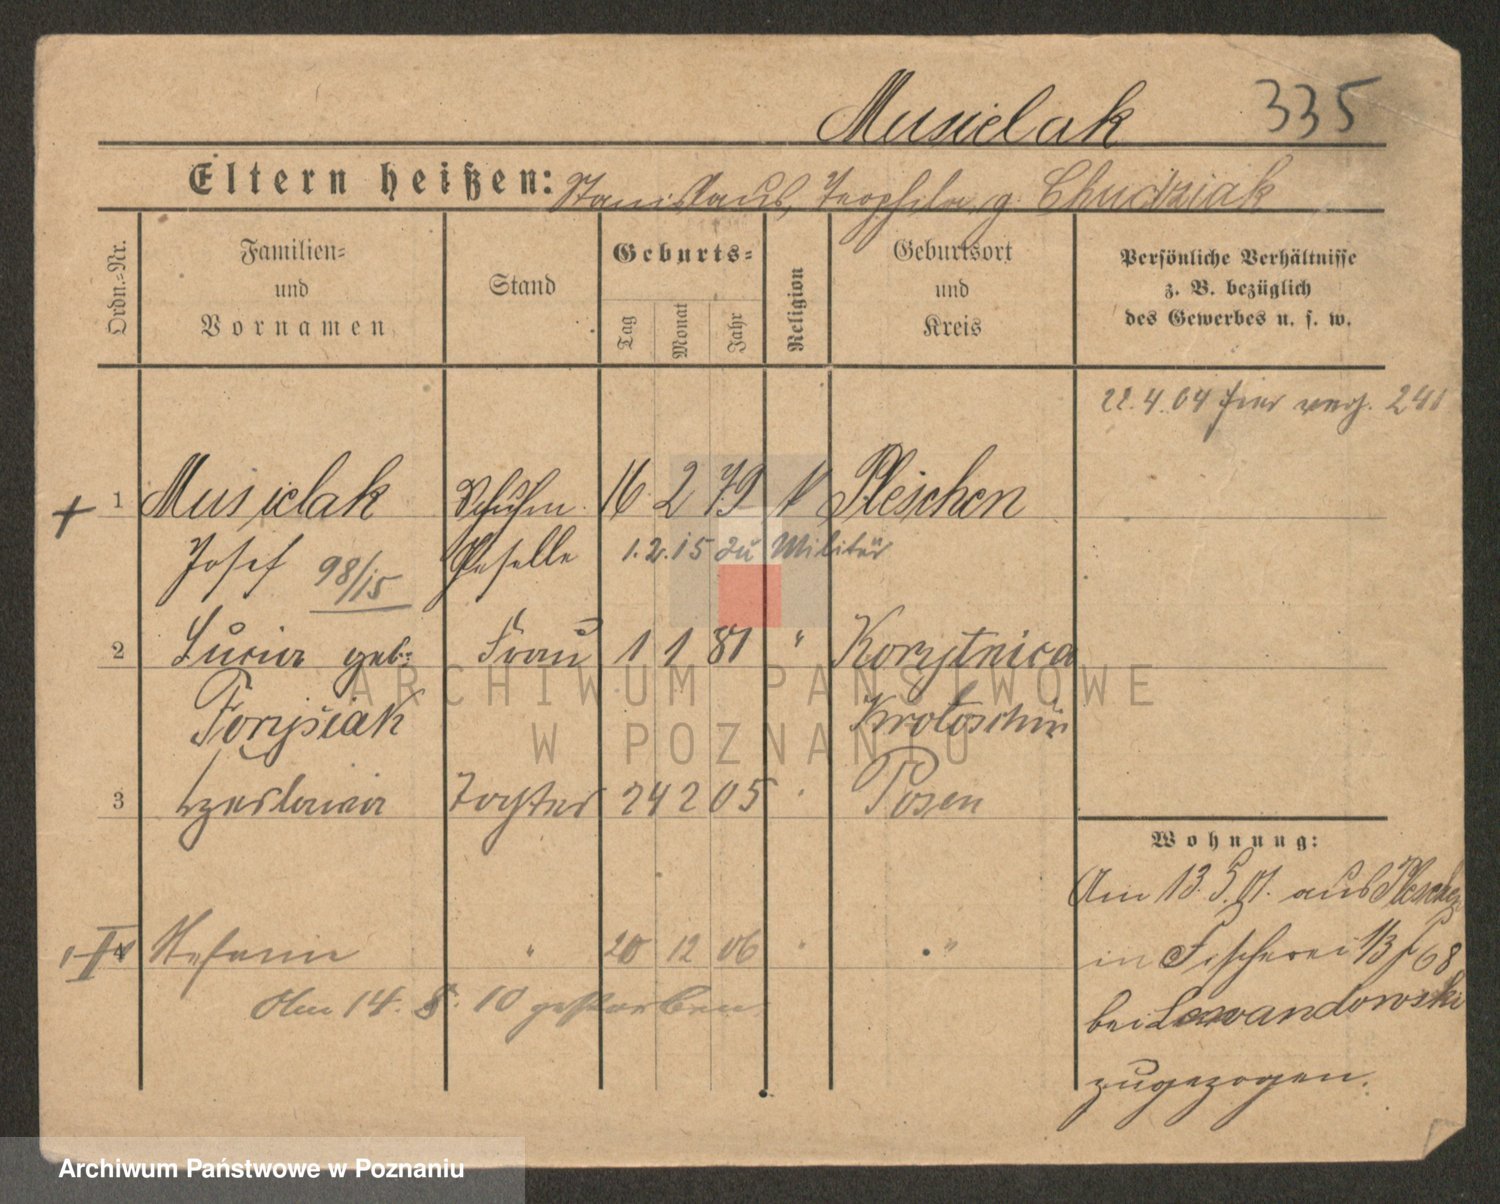 Musielak 335
Eltern heißen: Stanislaus, Teophila g. Chudziak
Ordn.-Nr.
Familien-
und
Vornamen
Stand
Geburts-
Tag
Monat
Jahr
Religion
Geburtsort
und
Kreis
Persönliche Verhältnisse
z. B. bezüglich
des Gewerbes u. s. w.
22.4.04 hier
1 Musielak Schuhm. 16 2 79 K Pleschen
Josef 98/15 Geselle 1.2.15 zu Militär
2 Lucia geb. Frau 1 1 81 " Korytnica
Forysiak Krotoschin
3 Czeslawa Tochter 24 2 05 Posen
Wohnung:
Am 13.5.01. aus Pleschen
4 Stefanie " 20 12 06 " "
in Fischerei 1/3
Am 14. 8. 10 gestorben.
bei Lewandowski
zugezogen.
ARCHIWUM PAŃSTWOWE
W POZNANIU
Archiwum Państwowe w Poznaniu